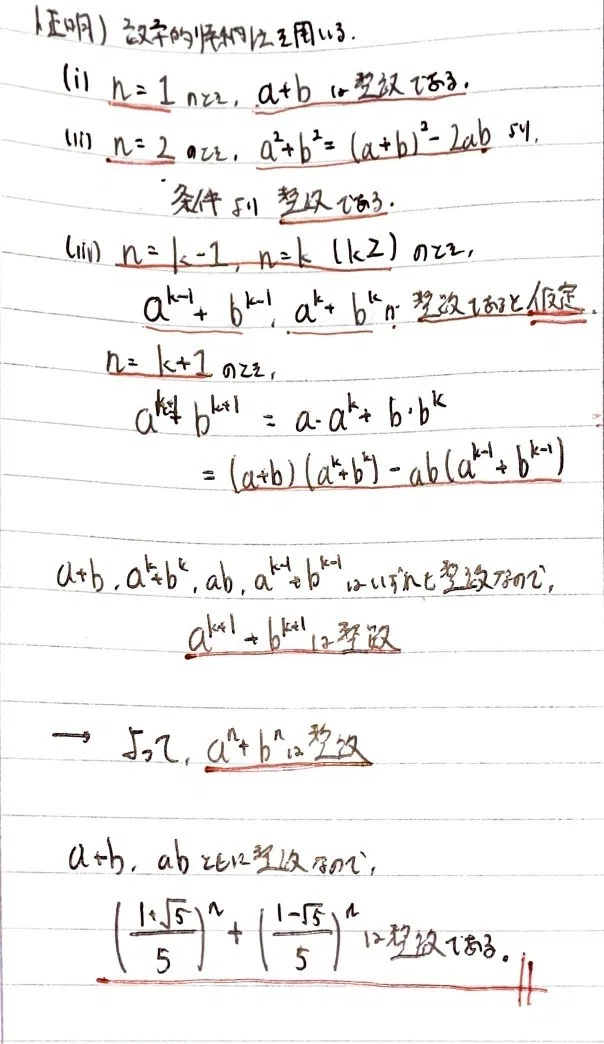 (証明) 数学的帰納法を用いる.
(i) n = 1 のとき, a+b は整数である.
(ii) n = 2 のとき, a²+b² = (a+b)² - 2ab より,
条件より 整数である.
(iii) n = k-1, n = k (k≥2) のとき,
a^{k-1} + b^{k-1}, a^k + b^k が整数であると仮定.
n = k+1 のとき,
a^{k+1} + b^{k+1} = a・a^k + b・b^k
= (a+b)(a^k+b^k) - ab(a^{k-1}+b^{k-1})
a+b, a^k+b^k, ab, a^{k-1}+b^{k-1} はいずれも整数なので,
a^{k+1} + b^{k+1} は整数
→ よって, a^n + b^n は整数
a+b, ab ともに整数なので,
((1+√5)/5)^n + ((1-√5)/5)^n は整数である.